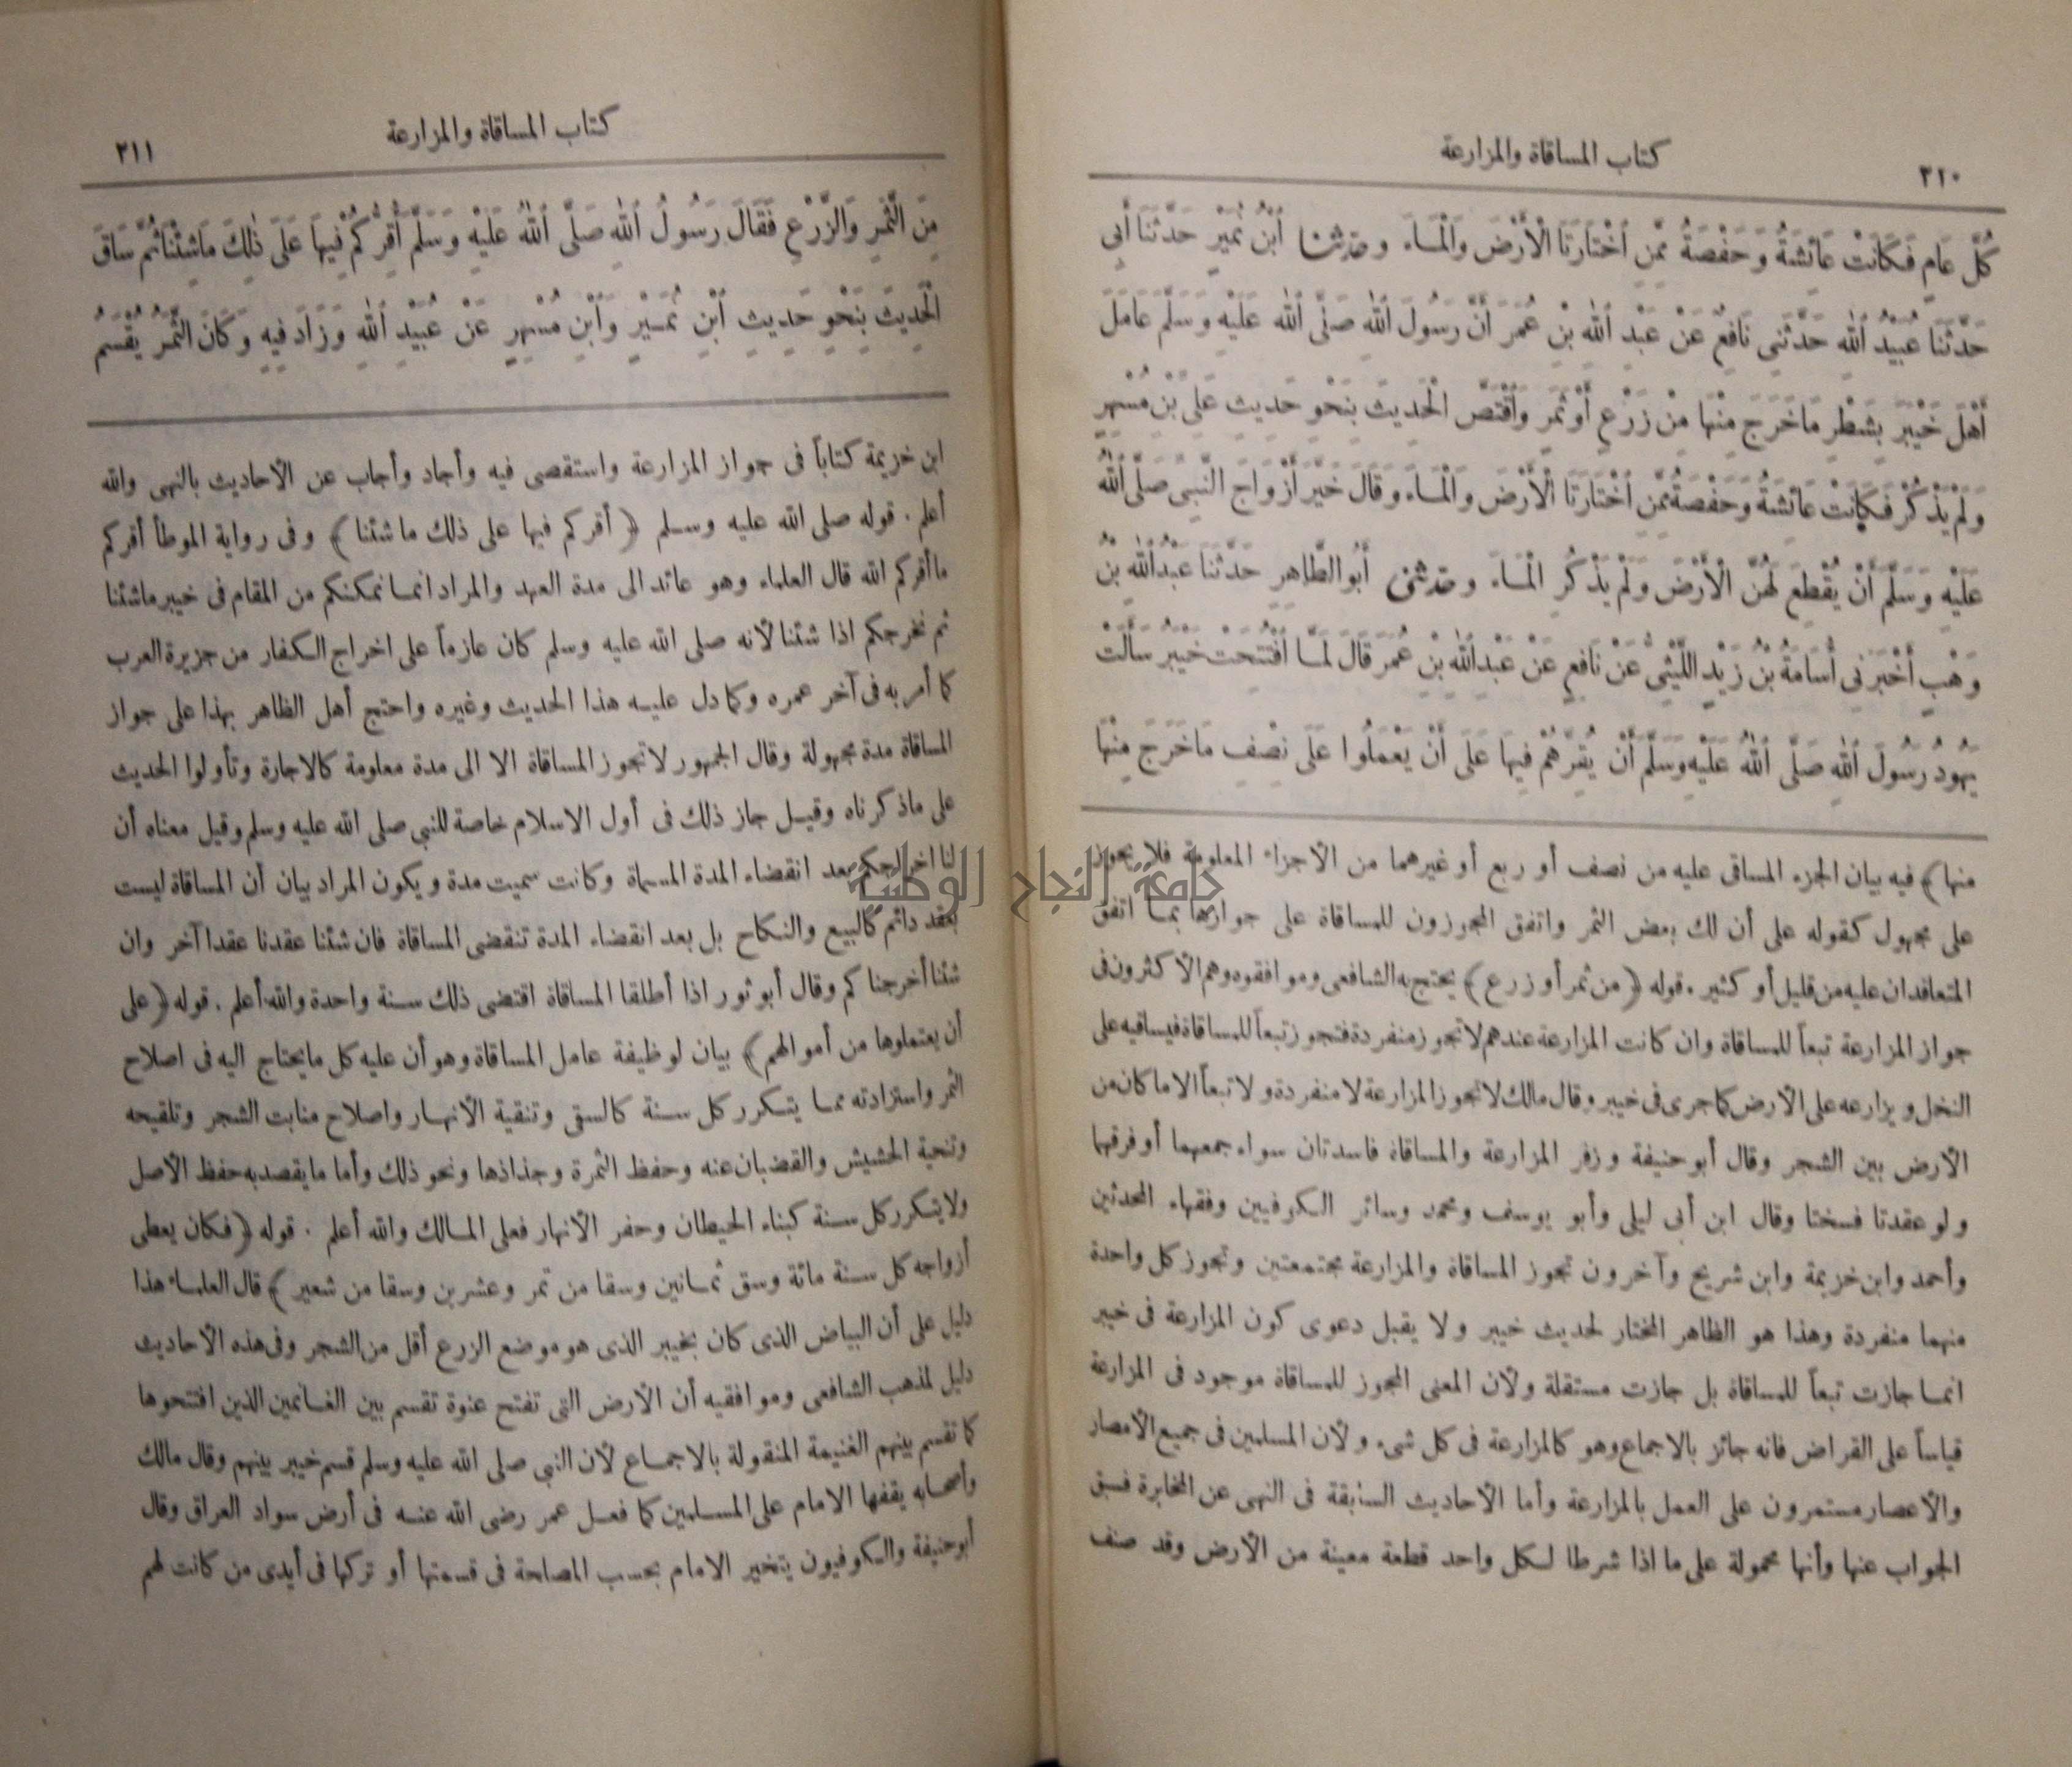 كتاب المساقاة والمزارعة
٢١٠
كُلَّ عَامٍ فَكَانَتْ عَائِشَةُ وَحَفْصَةُ مِمَّنِ اخْتَارَتَا الْأَرْضَ وَالْمَاءَ وحَدَّثَنَا ابْنُ نُمَيْرٍ حَدَّثَنَا أَبِي
حَدَّثَنَا عُبَيْدُ اللهِ حَدَّثَنِي نَافِعٌ عَنْ عَبْدِ اللهِ بْنِ عُمَرَ أَنَّ رَسُولَ اللهِ صَلَّى اللهُ عَلَيْهِ وَسَلَّمَ عَامَلَ
أَهْلَ خَيْبَرَ بِشَطْرِ مَا خَرَجَ مِنْهَا مِنْ زَرْعٍ أَوْ ثَمَرٍ وَاقْتَصَّ الْحَدِيثَ بِنَحْوِ حَدِيثِ عَلِيِّ بْنِ مُسْهِرٍ
وَلَمْ يَذْكُرْ فَكَانَتْ عَائِشَةُ وَحَفْصَةُ مِمَّنِ اخْتَارَتَا الْأَرْضَ وَالْمَاءَ وَقَالَ خَيَّرَ أَزْوَاجَ النَّبِيِّ صَلَّى اللهُ
عَلَيْهِ وَسَلَّمَ أَنْ يُقْطِعَ لَهُنَّ الْأَرْضَ وَلَمْ يَذْكُرِ الْمَاءَ وحَدَّثَنِي أَبُو الطَّاهِرِ حَدَّثَنَا عَبْدُ اللهِ بْنُ
وَهْبٍ أَخْبَرَنِي أُسَامَةُ بْنُ زَيْدٍ اللَّيْثِيُّ عَنْ نَافِعٍ عَنْ عَبْدِ اللهِ بْنِ عُمَرَ قَالَ لَمَّا افْتُتِحَتْ خَيْبَرُ سَأَلَتْ
يَهُودُ رَسُولَ اللهِ صَلَّى اللهُ عَلَيْهِ وَسَلَّمَ أَنْ يُقِرَّهُمْ فِيهَا عَلَى أَنْ يَعْمَلُوا عَلَى نِصْفِ مَا خَرَجَ مِنْهَا
منها) فيه بيان الجزء المساقى عليه من نصف أو ربع أو غيرهما من الأجزاء المعلومة فلا يجوز
على مجهول كقوله على أن لك بعض الثمر واتفق المجوزون للمساقاة على جوازها بما اتفق
المتعاقدان عليه من قليل أو كثير . قوله (من ثمر أو زرع) يحتج به الشافعى وموافقوه وهم الأكثرون فى
جواز المزارعة تبعاً للمساقاة وان كانت المزارعة عندهم لا تجوز منفردة فتجوز تبعاً للمساقاة فيساقيه على
النخل ويزارعه على الأرض كما جرى فى خيبر وقال مالك لا تجوز المزارعة لا منفردة ولا تبعاً الا ما كان من
الأرض بين الشجر وقال أبو حنيفة وزفر المزارعة والمساقاة فاسدتان سواء جمعهما أو فرقهما
ولو عقدتا فسختا وقال ابن أبى ليلى وأبو يوسف ومحمد وسائر الكوفيين وفقهاء المحدثين
وأحمد وابن خزيمة وابن شريح وآخرون تجوز المساقاة والمزارعة مجتمعتين وتجوز كل واحدة
منهما منفردة وهذا هو الظاهر المختار لحديث خيبر ولا يقبل دعوى كون المزارعة فى خيبر
انما جازت تبعاً للمساقاة بل جازت مستقلة ولأن المعنى المجوز للمساقاة موجود فى المزارعة
قياساً على القراض فانه جائز بالاجماع وهو كالمزارعة فى كل شىء ولأن المسلمين فى جميع الأمصار
والأعصار مستمرون على العمل بالمزارعة وأما الأحاديث السابقة فى النهى عن المخابرة فسبق
الجواب عنها وأنها محمولة على ما اذا شرطا لكل واحد قطعة معينة من الأرض وقد صنف
كتاب المساقاة والمزارعة
٢١١
مِنَ الثَّمَرِ وَالزَّرْعِ فَقَالَ رَسُولُ اللهِ صَلَّى اللهُ عَلَيْهِ وَسَلَّمَ أُقِرُّكُمْ فِيهَا عَلَى ذٰلِكَ مَا شِئْنَا ثُمَّ سَاقَ
الْحَدِيثَ بِنَحْوِ حَدِيثِ ابْنِ نُمَيْرٍ وَابْنِ مُسْهِرٍ عَنْ عُبَيْدِ اللهِ وَزَادَ فِيهِ وَكَانَ الثَّمَرُ يُقْسَمُ
ابن خزيمة كتاباً فى جواز المزارعة واستقصى فيه وأجاد وأجاب عن الأحاديث بالنهى والله
أعلم . قوله صلى الله عليه وسلم (أقركم فيها على ذلك ما شئنا) وفى رواية الموطأ أقركم
ما أقركم الله قال العلماء وهو عائد الى مدة العهد والمراد انما نمكنكم من المقام فى خيبر ما شئنا
ثم نخرجكم اذا شئنا لأنه صلى الله عليه وسلم كان عازماً على اخراج الكفار من جزيرة العرب
كما أمر به فى آخر عمره وكما دل عليه هذا الحديث وغيره واحتج أهل الظاهر بهذا على جواز
المساقاة مدة مجهولة وقال الجمهور لا تجوز المساقاة الا الى مدة معلومة كالاجارة وتأولوا الحديث
على ما ذكرناه وقيل جاز ذلك فى أول الاسلام خاصة للنبى صلى الله عليه وسلم وقيل معناه أن
لنا اخراجكم بعد انقضاء المدة المسماة وكانت سميت مدة ويكون المراد بيان أن المساقاة ليست
بعقد دائم كالبيع والنكاح بل بعد انقضاء المدة تنقضى المساقاة فان شئنا عقدنا عقدا آخر وان
شئنا أخرجناكم وقال أبو ثور اذا أطلقا المساقاة اقتضى ذلك سنة واحدة والله أعلم . قوله (على
أن يعتملوها من أموالهم) بيان لوظيفة عامل المساقاة وهو أن عليه كل ما يحتاج اليه فى اصلاح
الثمر واستزادته مما يتكرر كل سنة كالسقى وتنقية الأنهار واصلاح منابت الشجر وتلقيحه
وتنحية الحشيش والقضبان عنه وحفظ الثمرة وجذاذها ونحو ذلك وأما ما يقصد به حفظ الأصل
ولا يتكرر كل سنة كبناء الحيطان وحفر الأنهار فعلى المالك والله أعلم . قوله (فكان يعطى
أزواجه كل سنة مائة وسق ثمانين وسقا من تمر وعشرين وسقا من شعير) قال العلماء هذا
دليل على أن البياض الذى كان بخيبر الذى هو موضع الزرع أقل من الشجر وفى هذه الأحاديث
دليل لمذهب الشافعى وموافقيه أن الأرض التى تفتح عنوة تقسم بين الغانمين الذين افتتحوها
كما تقسم بينهم الغنيمة المنقولة بالاجماع لأن النبى صلى الله عليه وسلم قسم خيبر بينهم وقال مالك
وأصحابه يقفها الامام على المسلمين كما فعل عمر رضى الله عنه فى أرض سواد العراق وقال
أبو حنيفة والكوفيون يتخير الامام بحسب المصلحة فى قسمتها أو تركها فى أيدى من كانت لهم
جامعة النجاح الوطنية